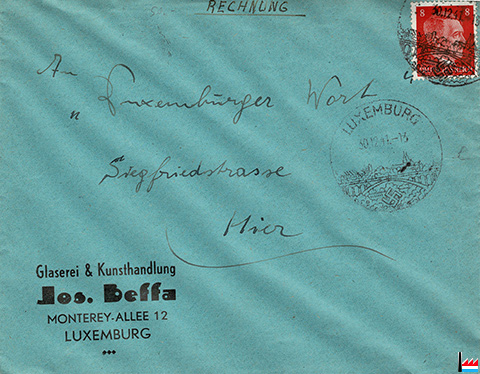 RECHNUNG
8 8
30.12.41
An
" Luxemburger Wort "
Siegfriedstrasse
Hier
LUXEMBURG
30.12.41.-13
Glaserei & Kunsthandlung
Jos. Beffa
MONTEREY-ALLEE 12
LUXEMBURG